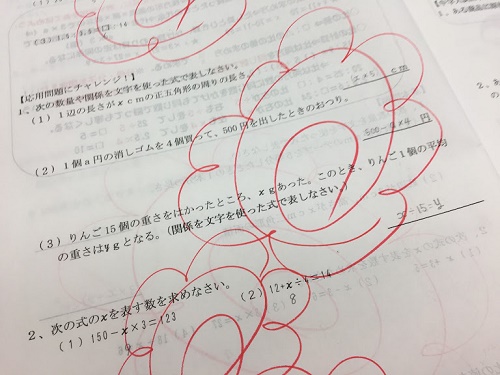 (3) 1.5:3.5=□:14
【応用問題にチャレンジ!】
1、次の数量や関係を文字を使った式で表しなさい。
(1) 1辺の長さがxcmの正五角形の周りの長さ。
x×5 cm
(2) 1個a円の消しゴムを4個買って、500円を出したときのおつり。
500-a×4 円
(3) りんご15個の重さをはかったところ、xgあった。このとき、りんご1個の平均
の重さはygとなる。(関係を文字を使った式で表しなさい。)
x÷15=y
2、次の式のxを表す数を求めなさい。
(1) 150-x×3=123
9
(2) 12+x÷4=14
8